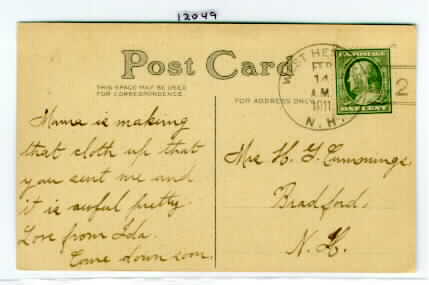 12049
Post Card
THIS SPACE MAY BE USED
FOR CORRESPONDENCE.
FOR ADDRESS ONLY
WEST HE
FEB
14
A.M.
1911
N. H.
2
U.S. POSTAGE
ONE CENT
Mama is making
that cloth up that
you sent me and
it is awful pretty
Love from Ida.
Come down soon.
Mrs H. F. Cummings.
Bradford.
N. H.